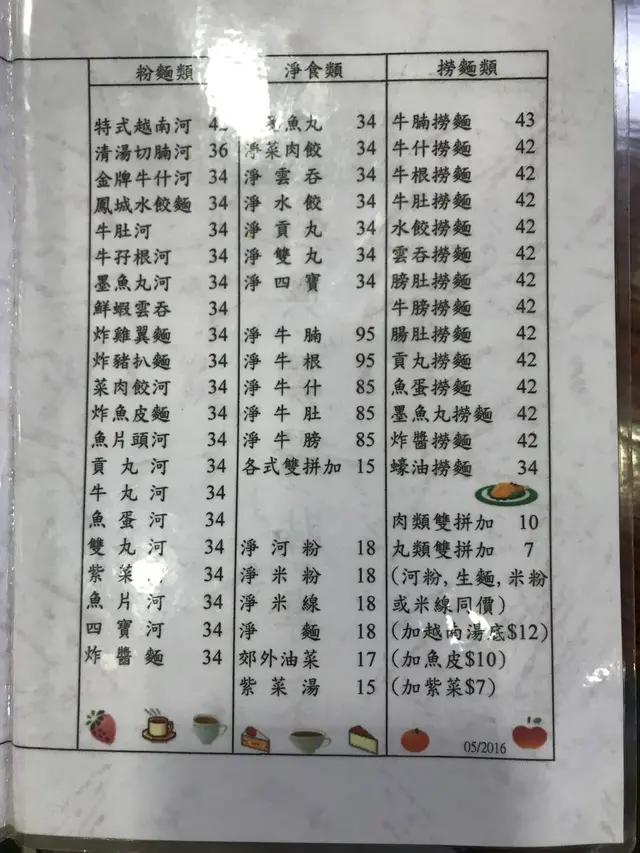 粉麵類
特式越南河
清湯切腩河 36
金牌牛什河 34
鳳城水餃麵 34
牛肚河 34
牛孖根河 34
墨魚丸河 34
鮮蝦雲吞 34
炸雞翼麵 34
炸豬扒麵 34
菜肉餃河 34
炸魚皮麵 34
魚片頭河 34
貢丸河 34
牛丸河 34
魚蛋河 34
雙丸河 34
紫菜 34
魚片河 34
四寶河 34
炸醬麵 34
淨食類
魚丸 34
淨菜肉餃 34
淨雲吞 34
淨水餃 34
淨貢丸 34
淨雙丸 34
淨四寶 34
淨牛腩 95
淨牛根 95
淨牛什 85
淨牛肚 85
淨牛膀 85
各式雙拼加 15
淨河粉 18
淨米粉 18
淨米線 18
淨麵 18
郊外油菜 17
紫菜湯 15
撈麵類
牛腩撈麵 43
牛什撈麵 42
牛根撈麵 42
牛肚撈麵 42
水餃撈麵 42
雲吞撈麵 42
膀肚撈麵 42
牛膀撈麵 42
腸肚撈麵 42
貢丸撈麵 42
魚蛋撈麵 42
墨魚丸撈麵 42
炸醬撈麵 42
蠔油撈麵 34
肉類雙拼加 10
丸類雙拼加 7
(河粉,生麵,米粉
或米線同價)
(加越南湯底$12)
(加魚皮$10)
(加紫菜$7)
05/2016